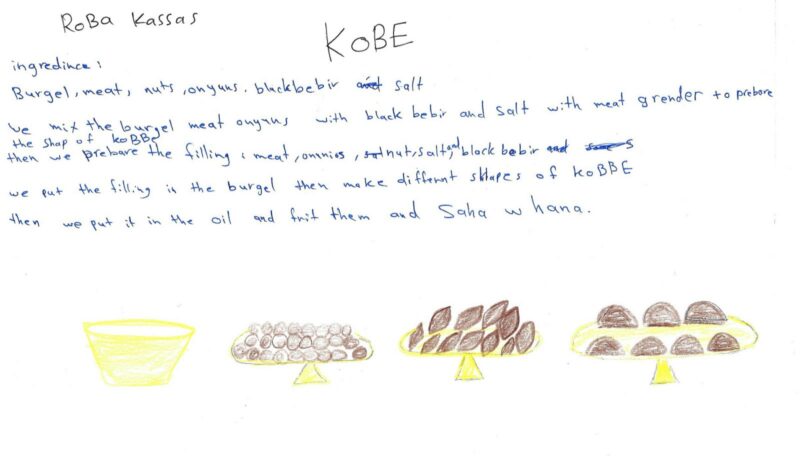 RoBa Kassas
KoBE
ingredince:
Burgel, meat, nuts, onyuns. bluckbebir and salt
we mix the burgel meat onyuns with black bebir and salt with meat grender to prebore
the shap of koBBe
then we prebare the filling : meat, onnios, nut, salt, and black bebir
we put the filling in the burgel then make differnt shapes of KoBBE
then we put it in the oil and frit them and Saha w hana.